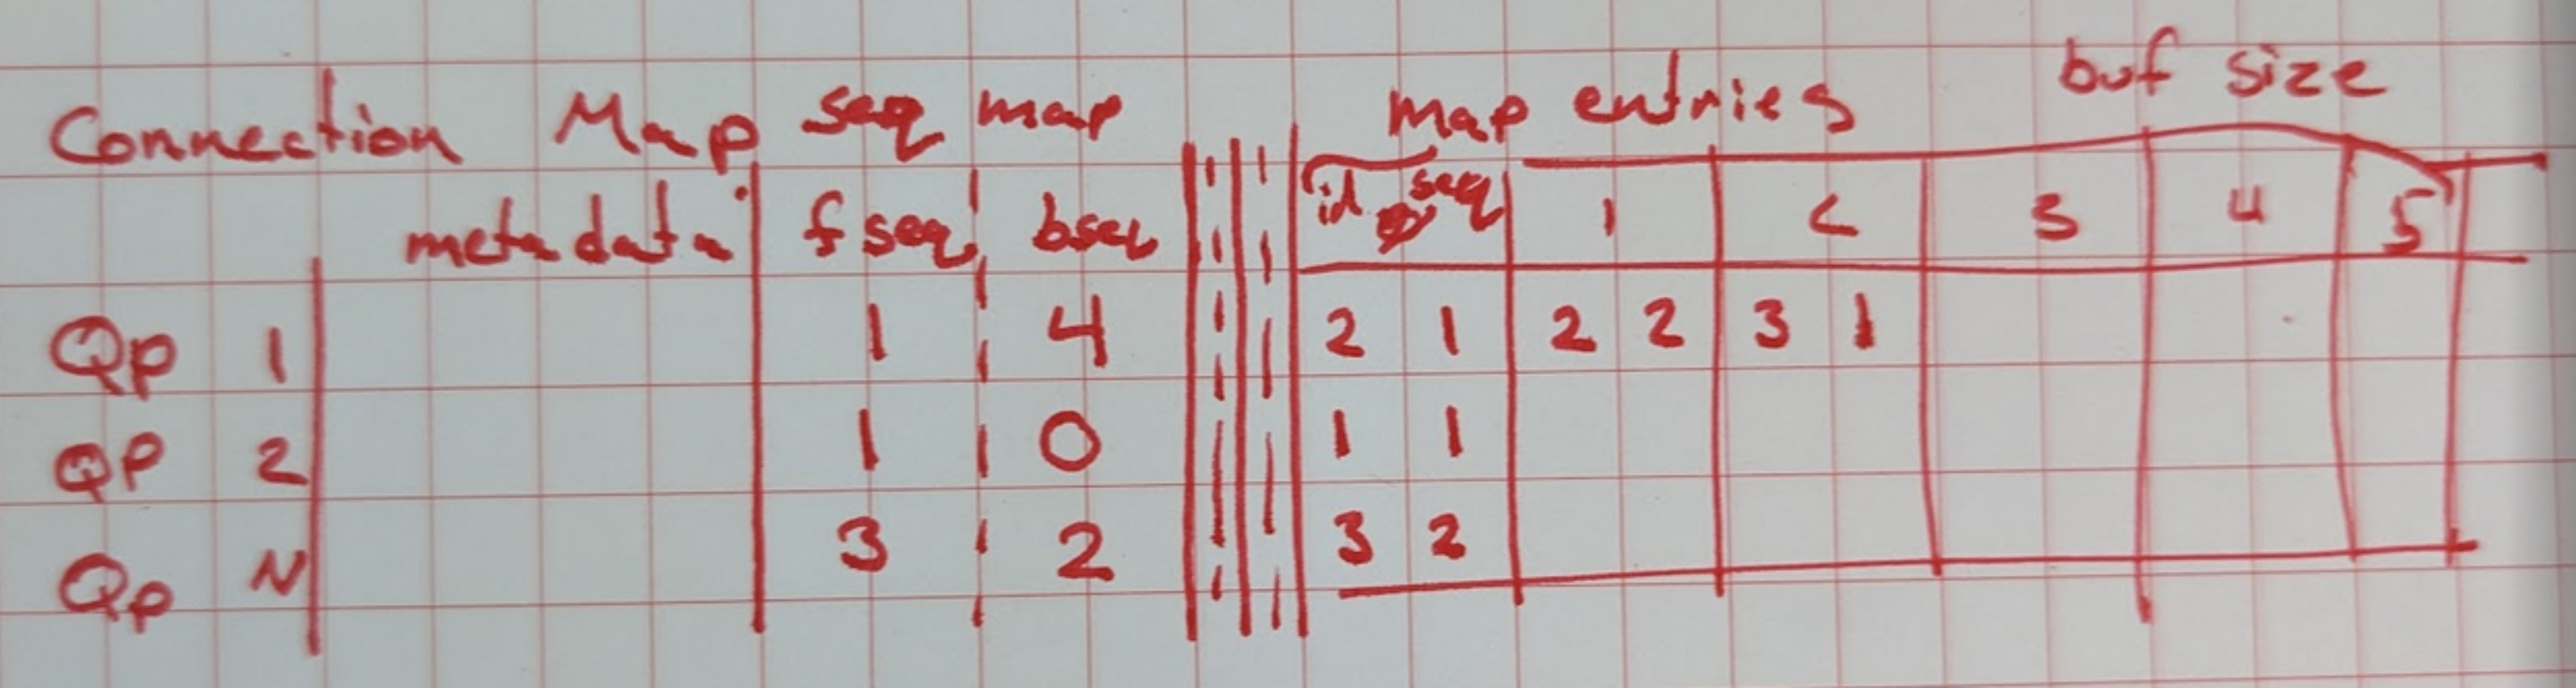 buf size
Connection Map seq map map entries
metadata fseq bseq id seq 1 2 3 4 5
Qp 1 1 4 2 1 2 2 3 1
QP 2 1 0 1 1
Qp N 3 2 3 2